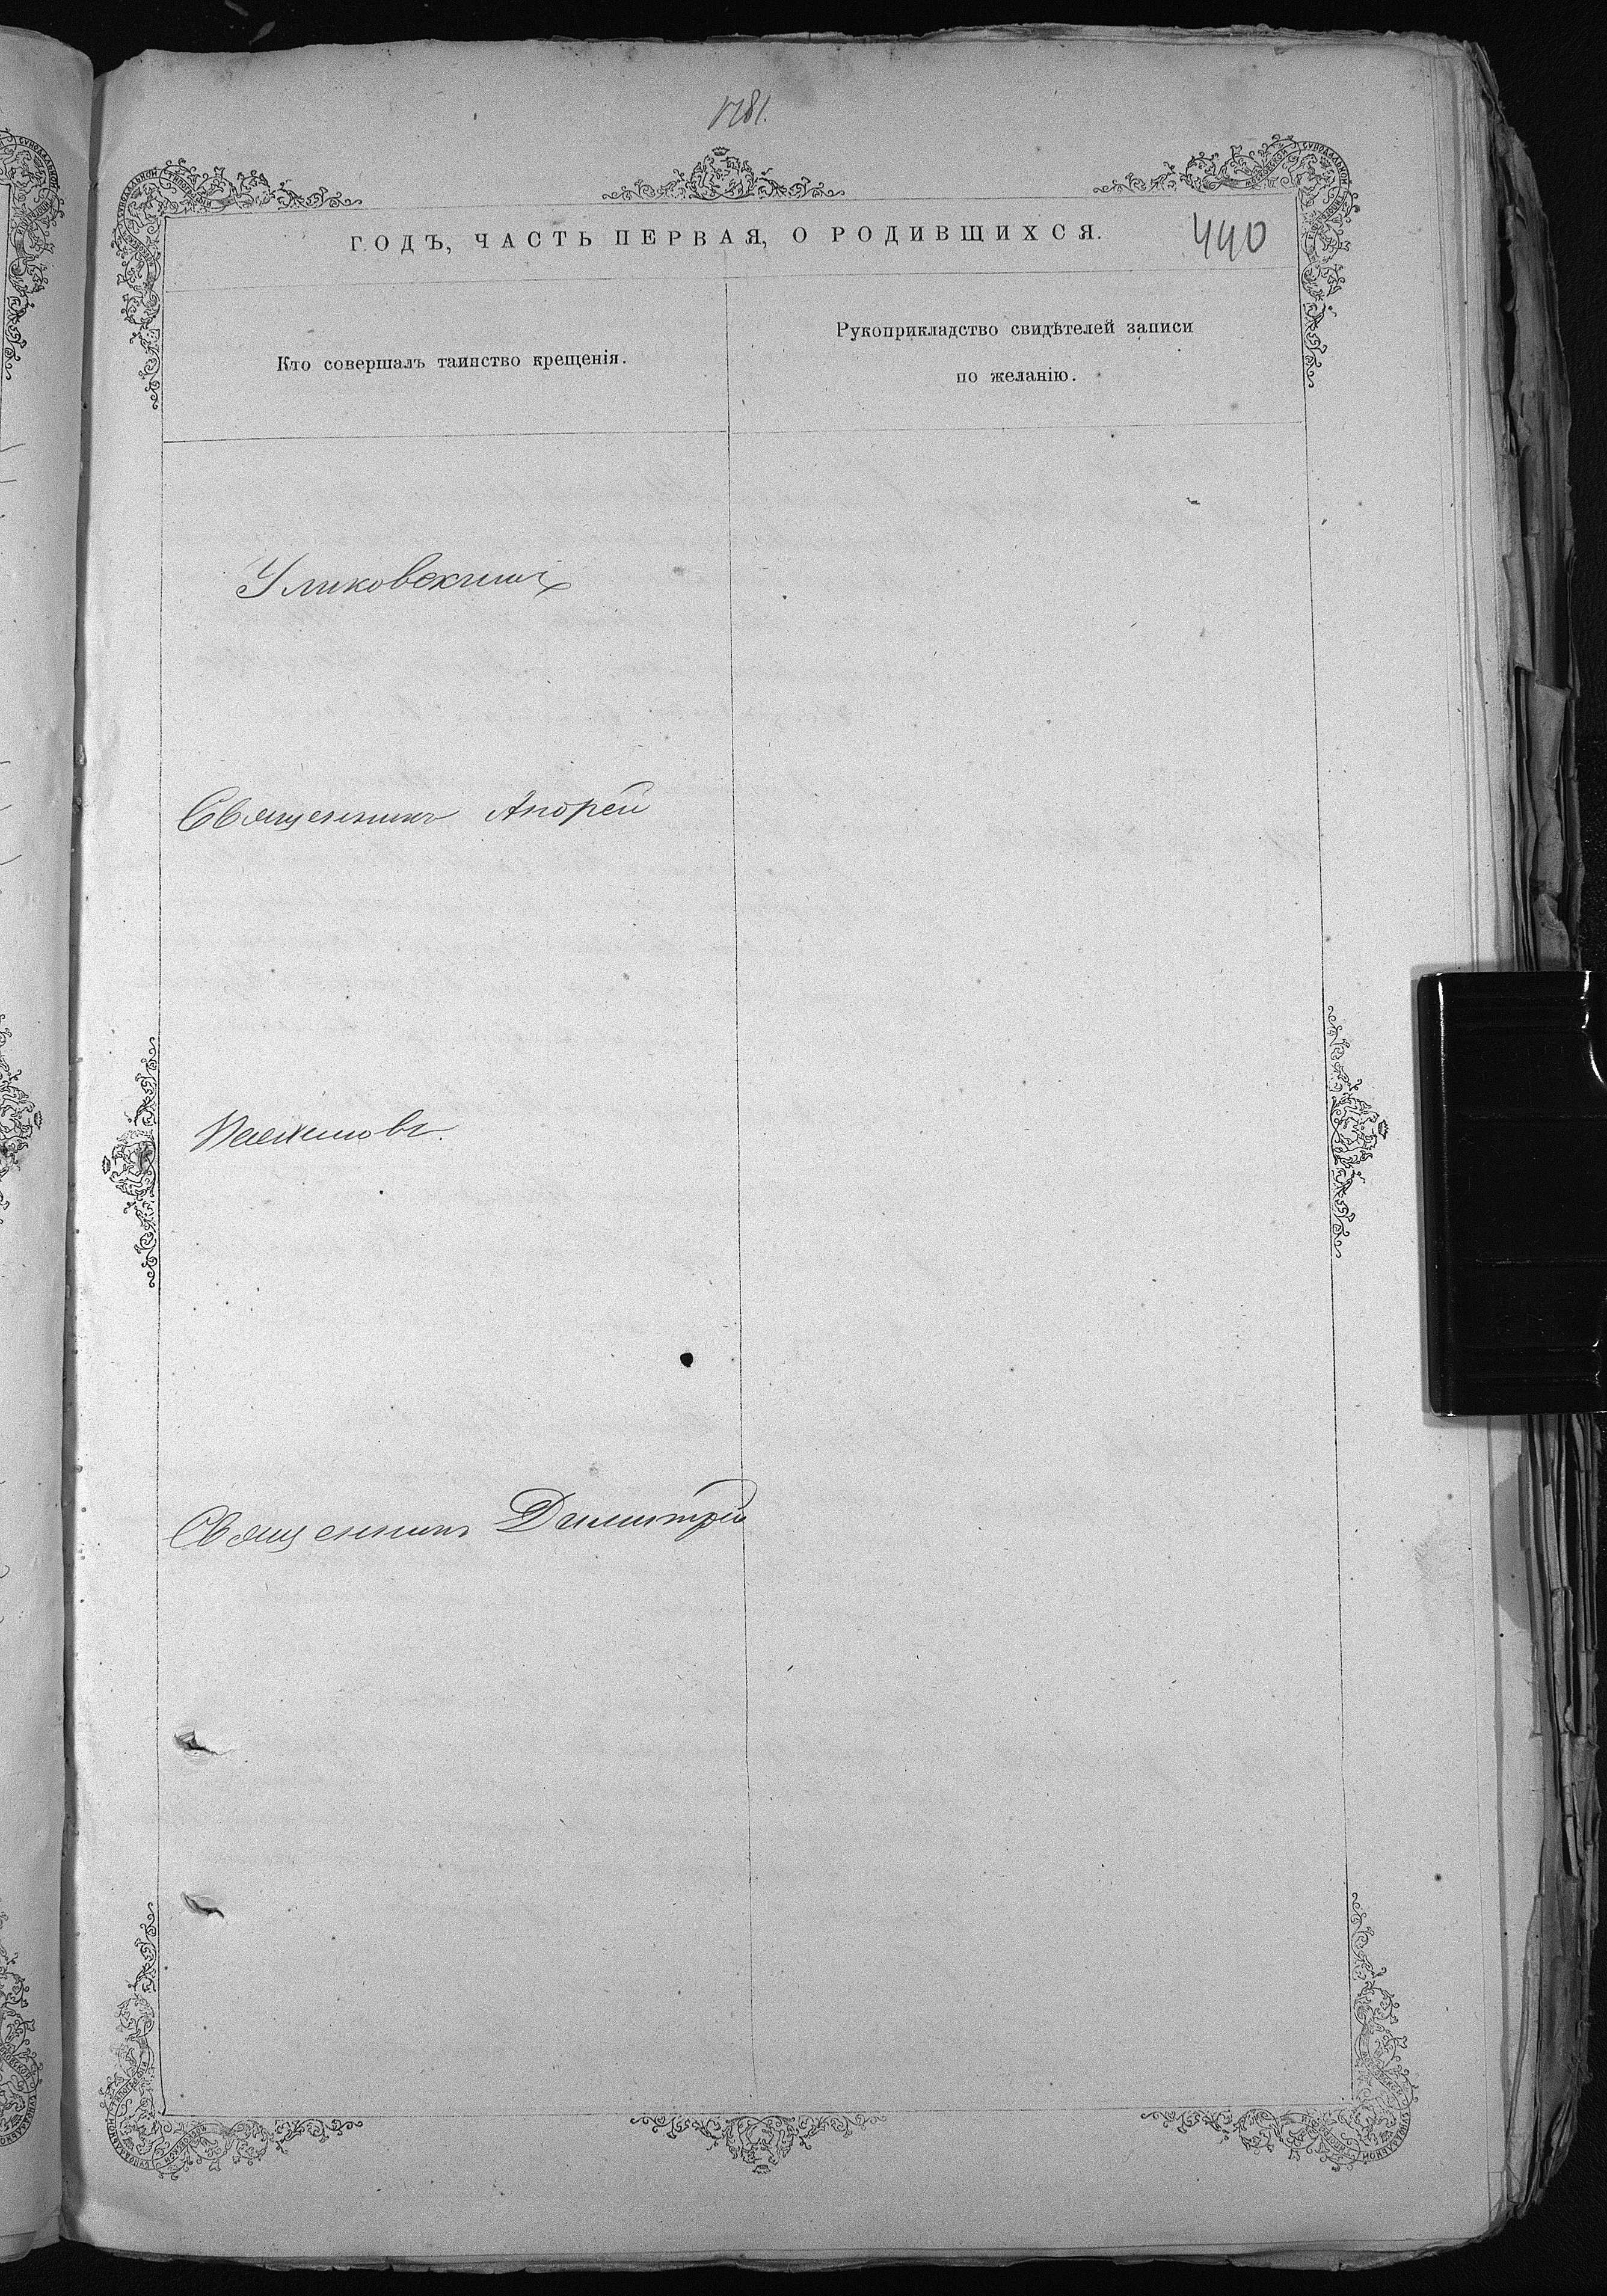 1781.
ГОДЪ, ЧАСТЬ ПЕРВАЯ, О РОДИВШИХСЯ.
440
Кто совершалъ таинство крещенія.
Рукоприкладство свидѣтелей записи
по желанію.
Священникъ Андрей
Священникъ Димитрій